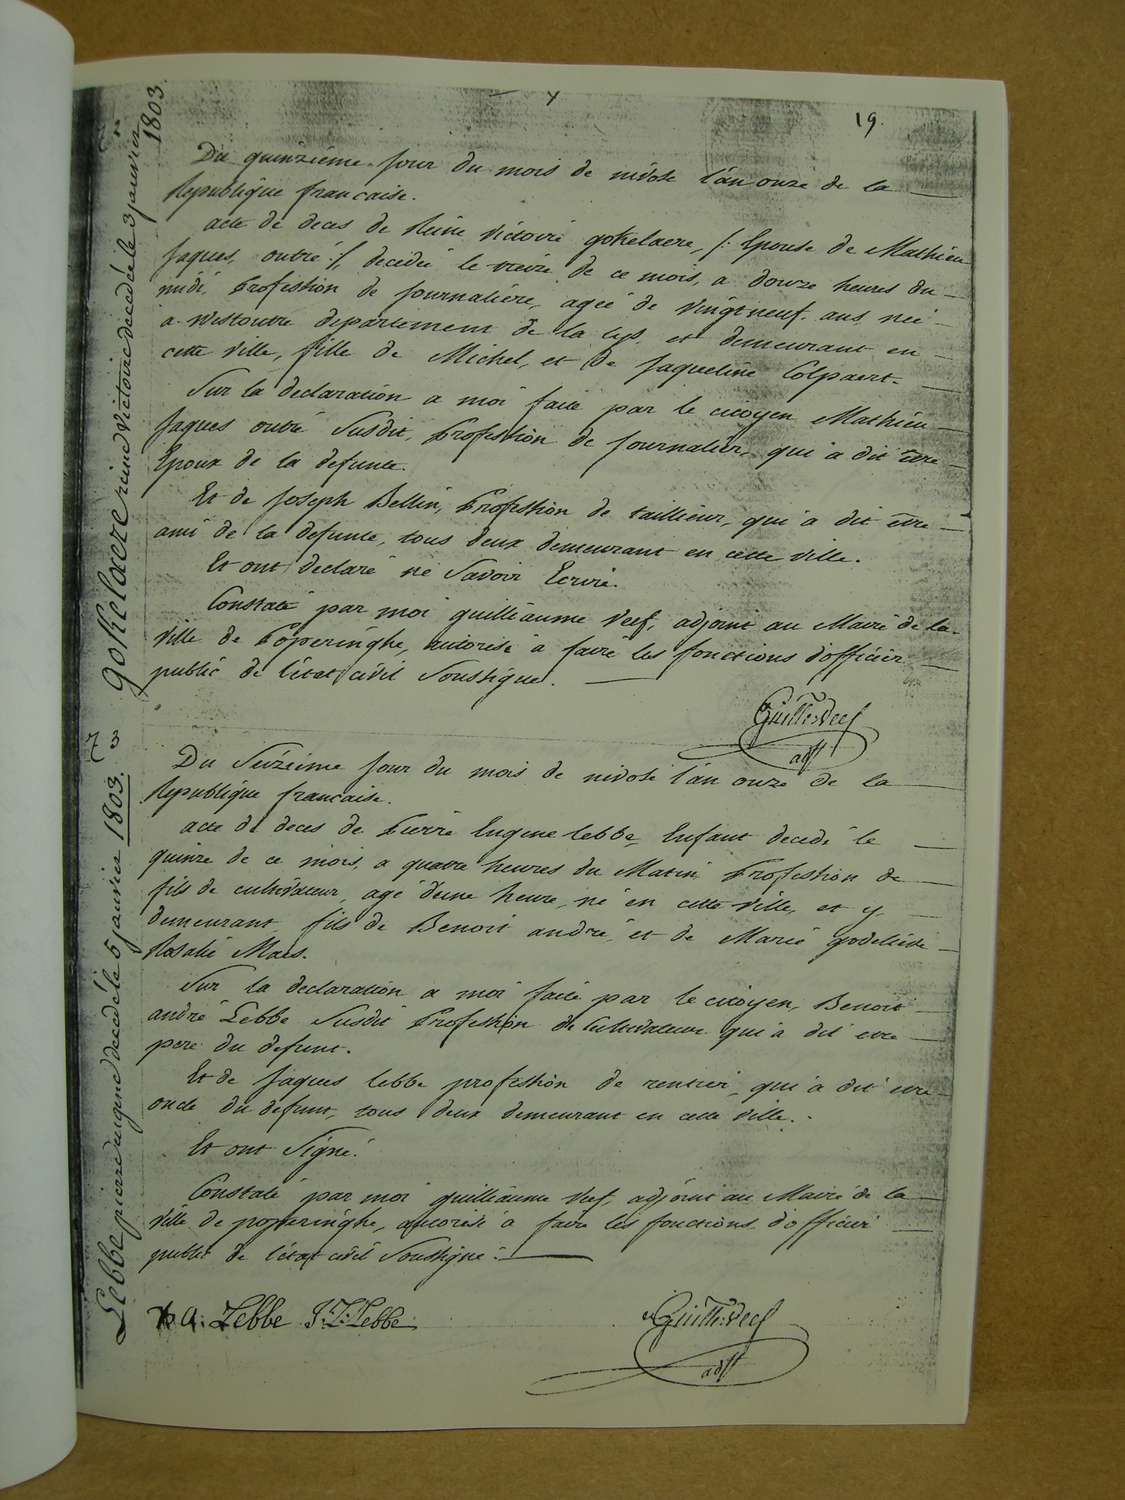 19.
Du quinzième jour du mois de nivose l'an onze de la
Republique francaise.
acte de deces de Reine Victoire gokelaere, /: Epouse de Mathieu
Jaques, outré :/, decedée le treize de ce mois, a douze heures du
midi, Profession de Journalière, agée de vingt neuf ans, née
a Westoutre departement de la Lys, et demeurant en
cette ville, fille de Michel, et de Jaqueline Colpaert.
Sur la declaration a moi faite par le citoyen Mathieu
Jaques outré Susdit, Profession de Journalier, qui a dit être
Epoux de la defunte.
Et de Joseph Bellin, Profession de taillieur, qui a dit être
ami de la defunte, tous deux demeurant en cette ville.
Et ont declaré ne Savoir Ecrire.
Constaté par moi guilliaume Veef, adjoint au Maire de la
ville de Poperinghe, autorisé a faire les fonctions d'officier
public de l'état civil Soussigne.
Guill: Veef
adjt
gokelaere reine victoire décédée le 3 janvier 1803.
Du Seizième jour du mois de nivose l'an onze de la
Republique francaise.
acte de deces de Pierre Eugene Lebbe, Enfant decedé le
quinze de ce mois, a quatre heures du Matin, Profession de
fils de cultivateur, agé d'une heure, né en cette ville, et y
demeurant, fils de Benoit andré, et de Marie godelieve
Rosalie Maes.
Sur la declaration a moi faite par le citoyen, Benoit
andré Lebbe Susdit Profession de Cultivateur qui a dit etre
pere du defunt.
Et de Jaques Lebbe profession de rentier, qui a dit etre
oncle du defunt, tous deux demeurant en cette ville.
Et ont Signé.
Constaté par moi guilliaume Veef, adjoint au Maire de la
ville de poperinghe, autorisé a faire les fonctions d'officier
public de l'état civil Soussigne.
b a: Lebbe J: J: Lebbe
Guill: Veef
adjt
Lebbe pierre eugene décédé le 5 janvier 1803.